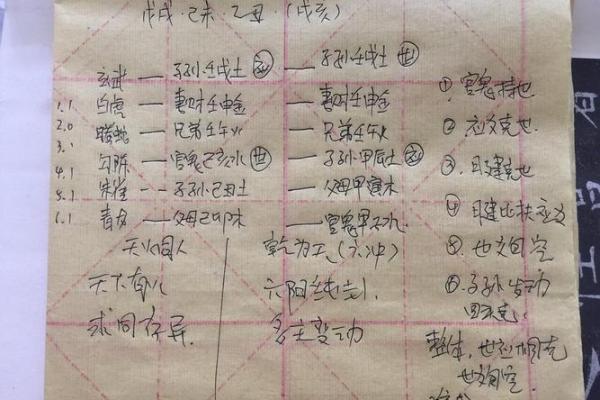 戊戌·己未·乙丑·(戌亥)
玄武 — 子孙·壬戌土 应 — 子孙·壬戌土 世
1.1 白虎 — 妻财·壬申金 — 妻财·壬申金
2.0 螣蛇 — 兄弟·壬午火 — 兄弟·壬午火
3.1
4.1 勾陈 — 官鬼·己亥水 世 — 子孙·甲辰土 应
5.1 朱雀 -- 子孙·己丑土 — 父母·甲寅木
6.1 青龙 — 父母·己卯木 — 官鬼·甲子水
天火同人
天下有火
求同存异
乾为天(六冲)
六阳纯卦
多主变动
① 官鬼持世
② 应爻克世
③ 日建克世
④ 日建比扶应爻
⑤ 世爻旬空
⑥ 子孙发动
回头克
整体,世应相克
世爻旬空